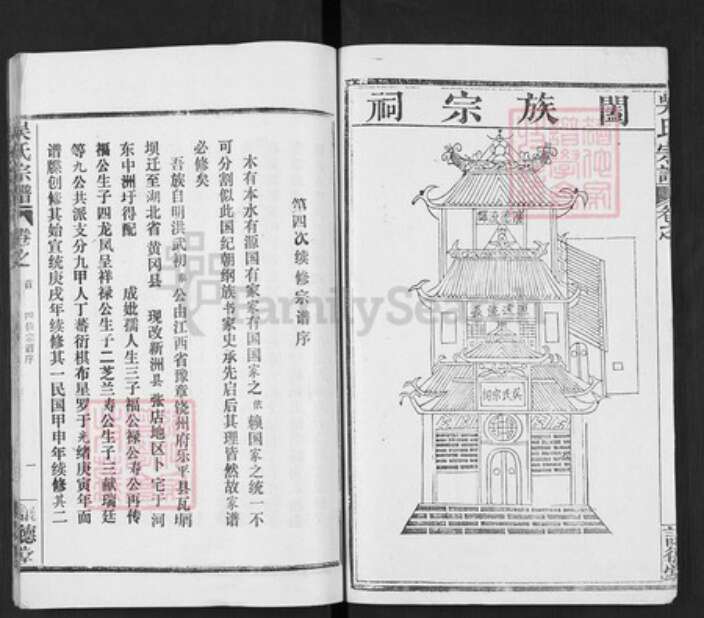 閤族宗祠
吳氏宗祠
吴氏宗譜
卷之
第四次续修宗谱序
木有本水有源国有家家有国国家之依赖国家之统一不
可分割似此国纪朝纲族书家史承先启后其理皆然故家谱
必修矣
吾族自明洪武初 公由江西省豫章饶州府乐平县瓦埫
坝迁至湖北省黄冈县 现改新洲县 张店地区卜宅于河
东中洲圩得配 成妣孺人生三子福公禄公寿公再传
福公生子四龙凤呈祥禄公生子二芝兰寿公生子三献瑞廷
等九公共派支分九甲人丁蕃衍棋布星罗于光绪庚寅年而
谱牒创修其始宣统庚戌年续修其一民国甲申年续修其二
吴氏宗谱
卷之
首 四修宗谱序
一
德堂
FamilySearch